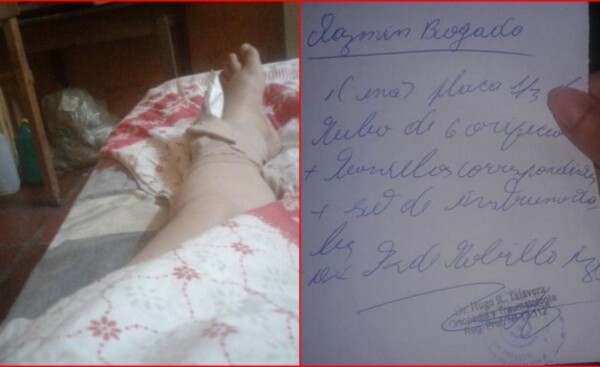 Jazmin Bogado
1 (una) placa 1/3 de
tubo de 6 orificio
+ tornillos correspondientes
+ set de instrumenta
Dx Fx de Tobillo izq
Dr. Hugo R. Talavera
Ortopedia y Traumatología
Reg. Prof.